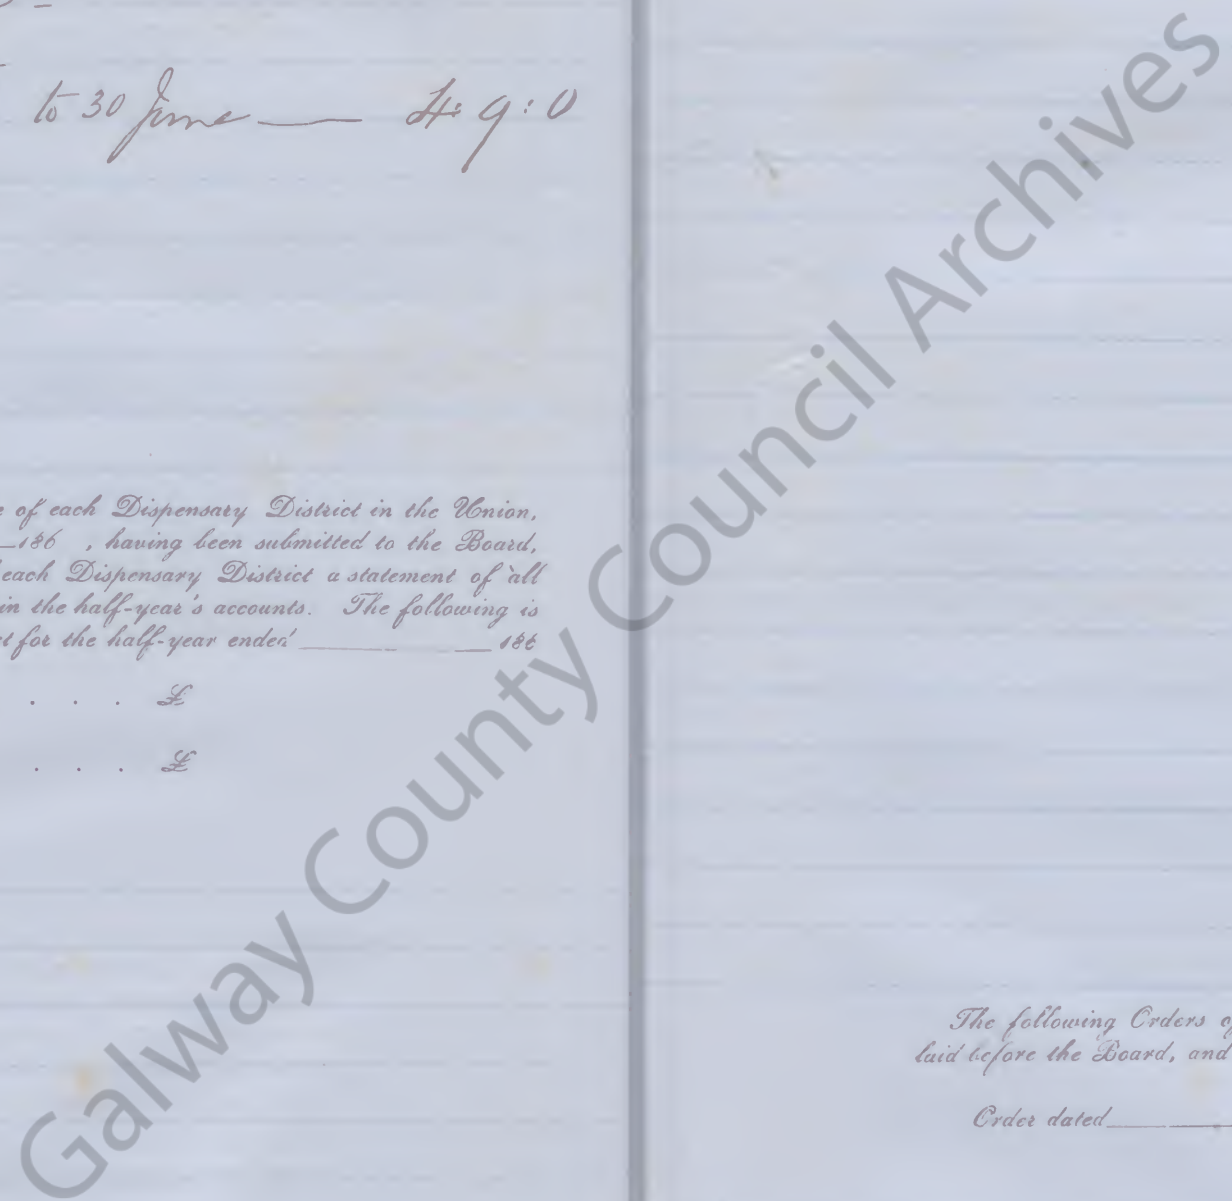 to 30 June — 4: 9: 0
of each Dispensary District in the Union,
186 , having been submitted to the Board,
each Dispensary District a statement of all
in the half-year's accounts. The following is
for the half-year ended ____ 186
. . . £
. . . £
The following Orders
laid before the Board, and
Order dated
Galway County Council Archives